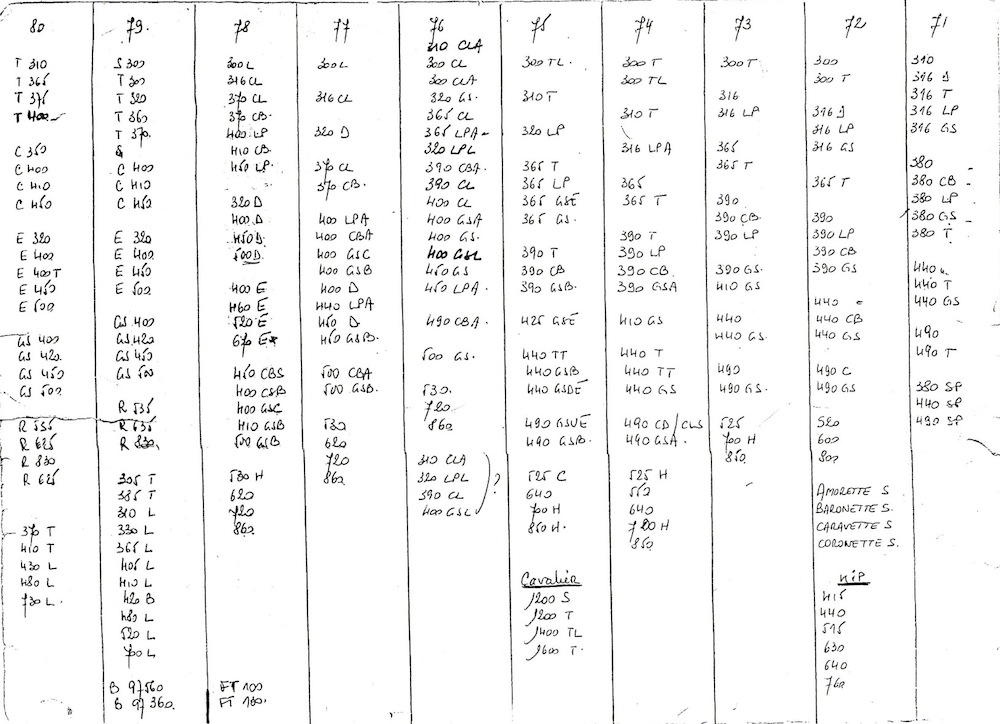 80
T 310
T 365
T 375
T 400
C 350
C 400
C 410
C 450
E 320
E 400
E 400 T
E 450
E 500
GS 400
GS 420
GS 450
GS 500
R 535
R 625
R 830
R 625
370 T
410 T
430 L
480 L
730 L.
79.
S 300
T 300
T 320
T 360
T 370.
C 400
C 410
C 450
E 320
E 400
E 450
E 500
GS 400
GS 420
GS 450
GS 500
R 535
R 635
R 830.
305 T
385 T
310 L
330 L
365 L
405 L
410 L
420 B
480 L
520 L
700 L
B 97560
B 97360.
78
300 L
316 CL
370 CL
370 CB.
400 LP
410 CB
450 LP.
320 D
400 D
450 D
500 D
400 E
460 E
520 E
670 E
450 CBS
400 CSB
400 GSC
410 GSB
500 GSB
530 H
620
720
860
FT 100
FT 130.
77
300 L
316 CL
320 D
370 CL
370 CB.
400 LPA
400 CBA
400 GSC
400 GSB
400 D
440 LPA
450 D
450 GSB.
500 CBA
500 GSB.
530
620
720
860
76
310 CLA
300 CL
300 CLA
320 GS.
365 CL
365 LPA -
320 LPL
390 CBA
390 CL
400 CL
400 GSA
400 GS.
400 GSL
450 GS
450 LPA.
490 CBA.
500 GS.
530.
720
860
310 CLA
320 LPL
390 CL
400 GSL
?
75
300 TL.
310 T
320 LP
365 T
365 LP
365 GSE
365 GS.
390 T
390 CB
390 GSB.
425 GSE
440 TT
440 GSB
440 GSDE
490 GSVE
490 GSB.
525 C
640
700 H
850 H.
Cavalier
1200 S
1200 T
1400 TL
1600 T.
74
300 T
300 TL
310 T
316 LPA
365
365 T
390 T
390 LP
390 CB.
390 GSA
410 GS
440 T
440 TT
440 GS
490 CD/CLS
490 GSA.
525 H
550
640
720 H
850
73
300 T
316
316 LP
365
365 T
390
390 CB.
390 LP
390 GS.
410 GS
440
440 GS.
490
490 GS.
525
700 H
850.
72
300
300 T
316 J
316 LP
316 GS
365 T
390
390 LP
390 CB
390 GS
440
440 CB
440 GS
490 C
490 GS
520
600
800
AMORETTE S
BARONETTE S.
CARAVETTE S
CORONETTE S.
KIP
415
440
515
630
640
760
71
310
316 J
316 T
316 LP
316 GS
380
380 CB
380 LP
380 GS
380 T
440
440 T
440 GS
490
490 T
380 SP
440 SP
490 SP